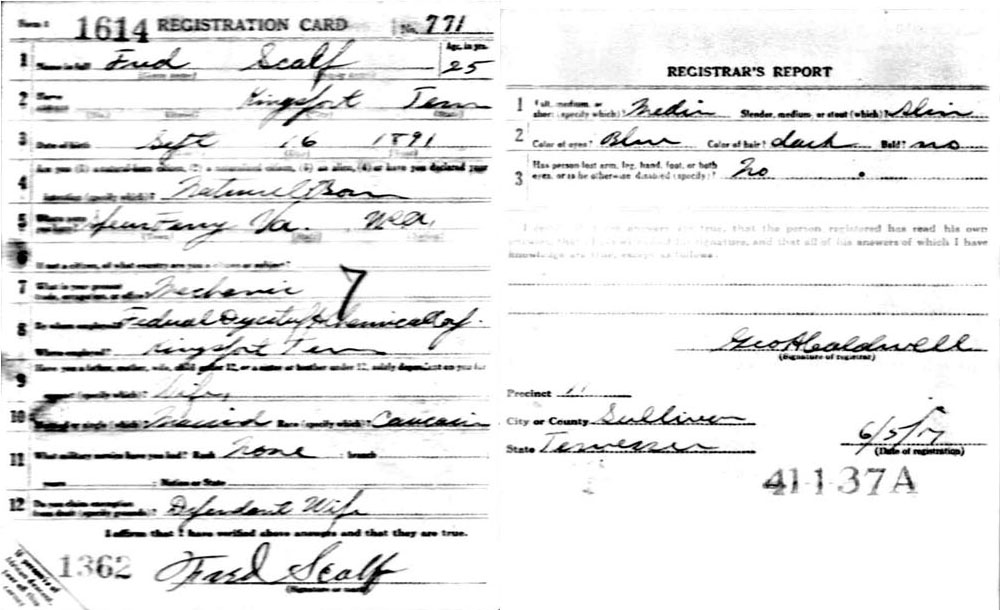 Form 1 1614 REGISTRATION CARD No. 771
1 Name in full Fred Scalf Age, in yrs. 25
(Given name) (Family name)
2 Home address Kingsport Tenn
(No.) (Street) (City) (State)
3 Date of birth Sept 16 1891
(Month) (Day) (Year)
Are you (1) a natural-born citizen, (2) a naturalized citizen, (3) an alien, (4) or have you declared your
4 intention (specify which)? Natural Born
5 Where were you born? Va. USA
(Town) (State) (Nation)
6 If not a citizen, of what country are you a citizen or subject?
7 What is your present trade, occupation, or office? Mechanic
8 By whom employed? Federal Dyestuff & Chemical
Where employed? Kingsport Tenn
Have you a father, mother, wife, child under 12, or a sister or brother under 12, solely dependent on you for
9 support (specify which)? Wife
10 Married or single (which)? Married Race (specify which)? Caucasin
11 What military service have you had? Rank None ; branch
years ; Nation or State
12 Do you claim exemption from draft (specify grounds)? Dependant Wife
I affirm that I have verified above answers and that they are true.
1362 Fred Scalf
(Signature or mark)
If person is of African descent, tear off this corner
REGISTRAR'S REPORT
1 Tall, medium, or short (specify which)? Medin Slender, medium, or stout (which)? Slim
2 Color of eyes? Blue Color of hair? dark Bald? no
3 Has person lost arm, leg, hand, foot, or both eyes, or is he otherwise disabled (specify)? No
I certify that my answers are true, that the person registered has read his own
answers, that I have witnessed his signature, and that all of his answers of which I have
knowledge are true, except as follows:
Geo H Caldwell
(Signature of registrar)
Precinct 11
City or County Sullivan
State Tennessee 6/5/17
(Date of registration)
41-1-37 A